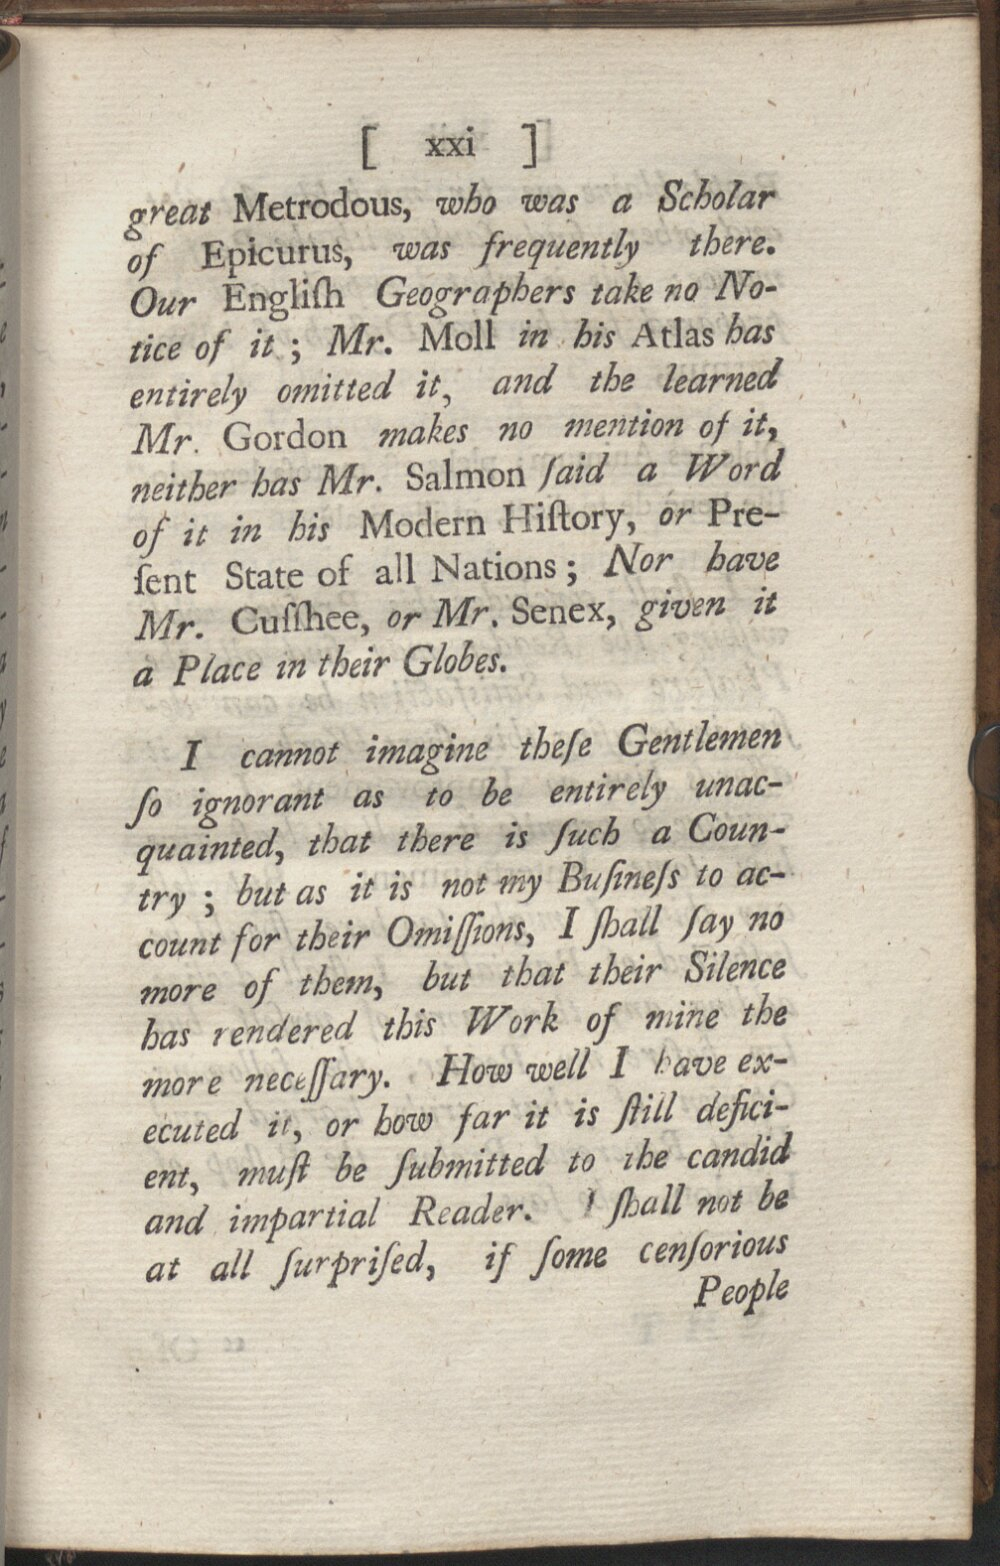 [ xxi ]
great Metrodous, who was a Scholar
of Epicurus, was frequently there.
Our Engliſh Geographers take no No-
tice of it ; Mr. Moll in his Atlas has
entirely omitted it, and the learned
Mr. Gordon makes no mention of it,
neither has Mr. Salmon ſaid a Word
of it in his Modern Hiſtory, or Pre-
ſent State of all Nations ; Nor have
Mr. Cuſſhee, or Mr. Senex, given it
a Place in their Globes.
I cannot imagine theſe Gentlemen
ſo ignorant as to be entirely unac-
quainted, that there is ſuch a Coun-
try ; but as it is not my Buſineſs to ac-
count for their Omiſſions, I ſhall ſay no
more of them, but that their Silence
has rendered this Work of mine the
more neceſſary. How well I have ex-
ecuted it, or how far it is ſtill defici-
ent, muſt be ſubmitted to the candid
and impartial Reader. I ſhall not be
at all ſurpriſed, if ſome cenſorious
People